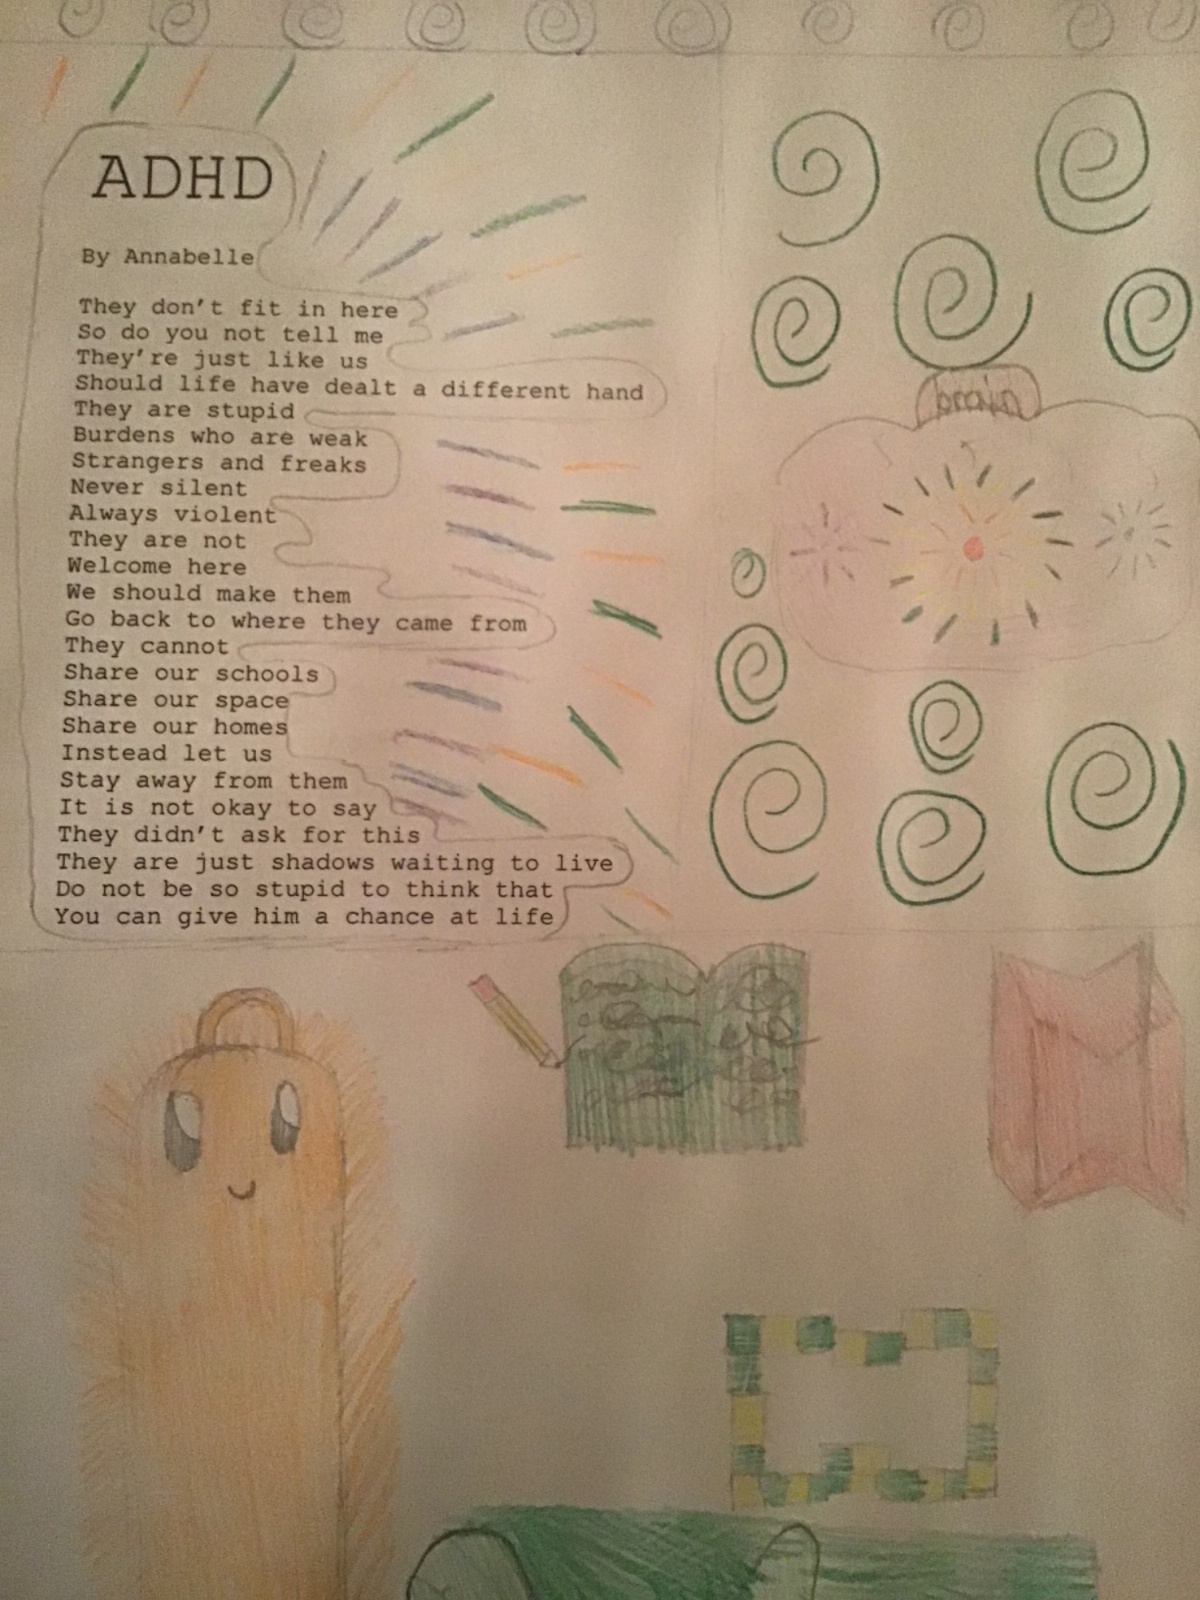 ADHD
By Annabelle
They don't fit in here
So do you not tell me
They're just like us
Should life have dealt a different hand
They are stupid
Burdens who are weak
Strangers and freaks
Never silent
Always violent
They are not
Welcome here
We should make them
Go back to where they came from
They cannot
Share our schools
Share our space
Share our homes
Instead let us
Stay away from them
It is not okay to say
They didn't ask for this
They are just shadows waiting to live
Do not be so stupid to think that
You can give him a chance at life
brain